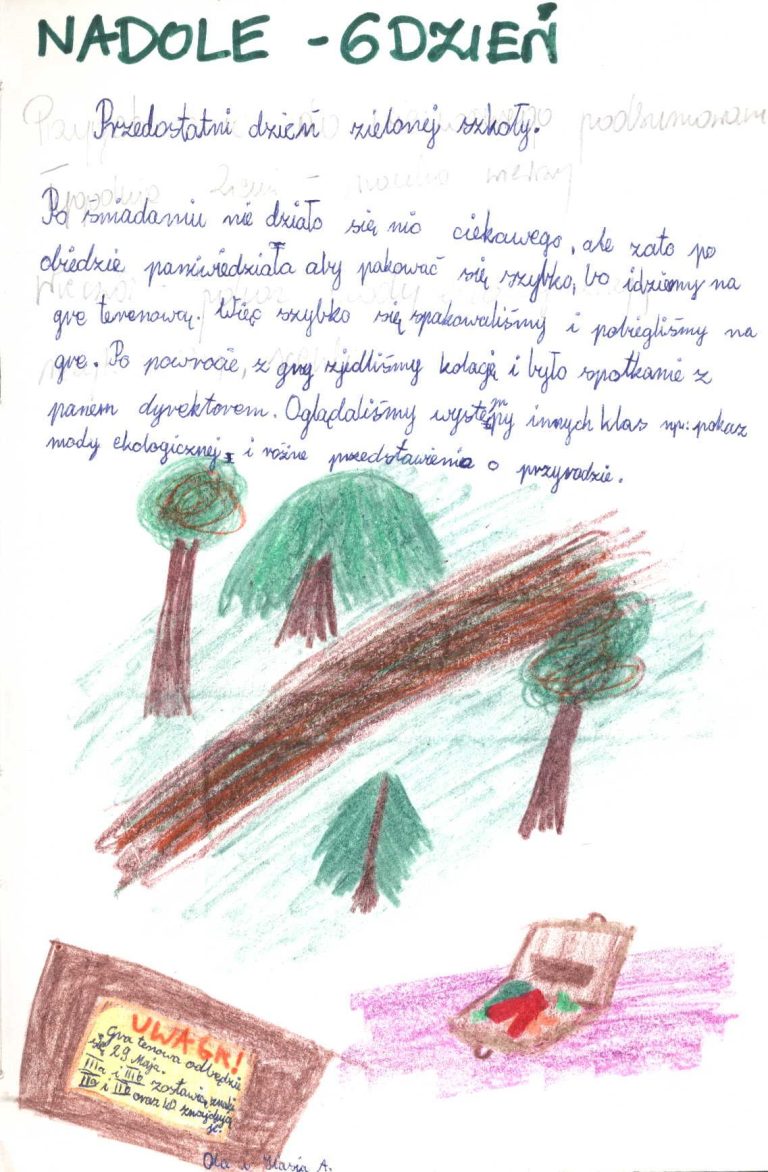 NADOLE - 6 DZIEŃ
Przedostatni dzień zielonej szkoły.
podsumowani
Po śniadaniu nie działo się nic ciekawego, ale zato po
obiedzie pani wiedziała aby pakować się szybko, bo idziemy na
grę terenową. Więc szybko się spakowaliśmy i pobiegliśmy na
grę. Po powrocie, z gry zjedliśmy kolację i było spotkanie z
panem dyrektorem. Oglądaliśmy występy innych klas np: pokaz
mody ekologicznej i różne przedstawienia o przyrodzie.
UWAGA!
Gra tenowa odbędzie
się 29 Maja.
IIIa i IIIb zostawią znaki
IIa i IIb oraz
Ola i Kasia A.